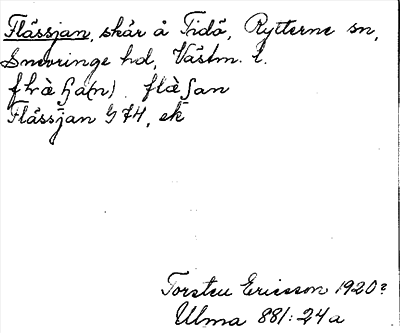 Flässjan, skär å Tidö, Rytterne sn,
Snevringe hd, Västm. l.
Flässjan G 74, ek
Torsten Ericsson 1920?
Ulma 881:24a